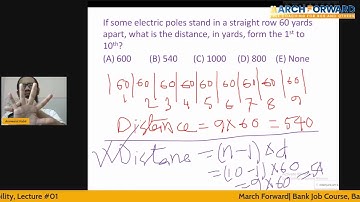 MARCH FORWARD
If some electric poles stand in a straight row 60 yards
apart, what is the distance, in yards, form the 1st to
10th?
(A) 600 (B) 540 (C) 1000 (D) 800 (E) None
60 60 60 60 60 60 60 60 60
1 2 3 4 5 6 7 8 9
Distance = 9×60 = 540
Distane = (n-1) × d
= (10-1) × 60
= 9×60 =
bility, Lecture #01
March Forward| Bank Job Course, Ba